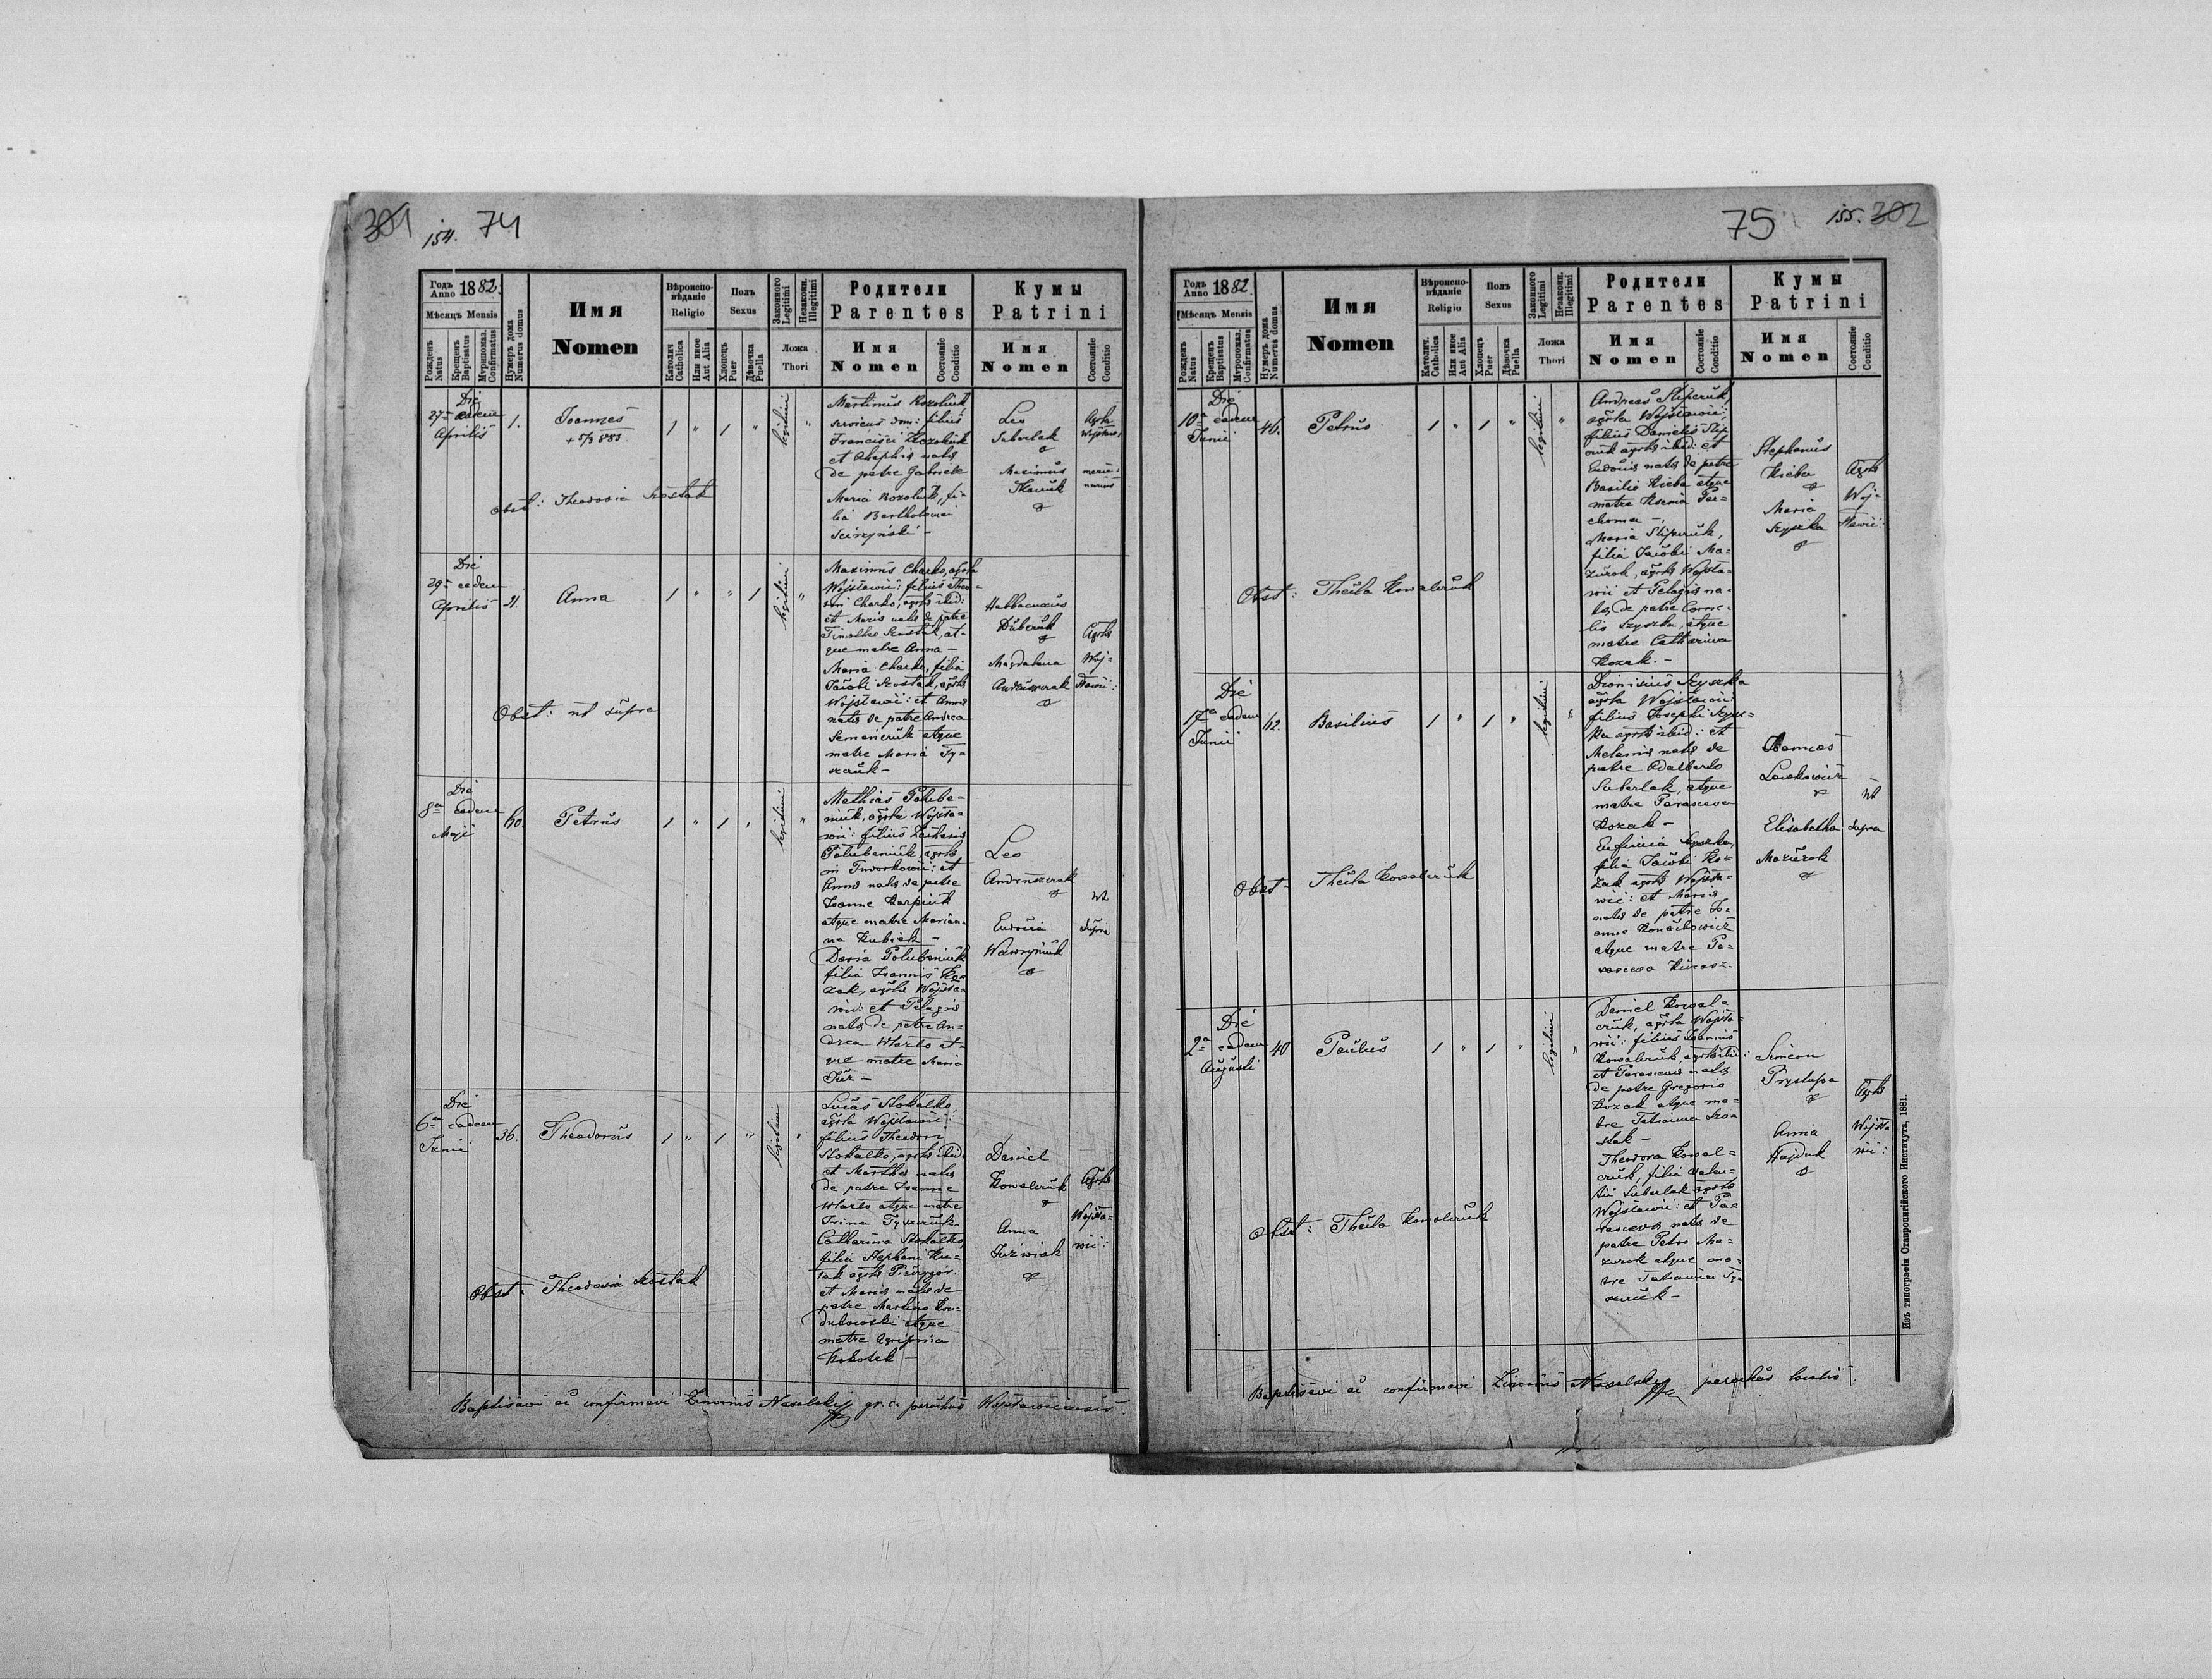 301 154. 74
Годъ Anno 1882.
Мѣсяцъ Mensis
Рожденъ Natus
Крещенъ Baptisatus
Мѵропомаз. Confirmatus
Нумеръ дома Numerus domus
Имя
Nomen
Вѣроиспо-
вѣданіе
Religio
Католич. Catholica
Или иное Aut Alia
Полъ
Sexus
Хлопецъ Puer
Дѣвочка Puella
Законного Legitimi
Незаконн. Illegitimi
Ложа
Thori
Родители
Parentes
Имя
Nomen
Состояніе Conditio
Кумы
Patrini
Имя
Nomen
Состояніе Conditio
Die
27a eadem
Aprilis
1.
Joannes
1 " 1 " legitimi "
Martinus Kozoluk
filius
Francisci Kozoluk
de patre Gabriele
Maria Kozoluk, fi-
lia Bartholomei
Leo
Suberlak
&
Maximus
Tkaczuk
&
Obst: Theodosia Szostak
Die
29a eadem
Aprilis
21.
Anna
1 " " 1 legitimi "
Maximus Charko, agrla
Wojslawic: filius Theo-
dori Charko, agrlae ibid:
et Mariae natae de patre
Timothe Szostak, at-
que matre Anna –
Maria Charko, filia
Jacobi Szostak, agrlae
Wojslawic: et Annae
natae de patre Andrea
Semenczuk atque
matre Maria Ty-
szczuk –
Habbacucus
Dubczuk
&
Magdalena
Andruszczak
&
Agrlae
Woj-
slawic:
Obst: ut supra
Die
8a eadem
Maji
60.
Petrus
1 " 1 " legitimi "
Mathias Polube-
niuk, agrla Wojsla-
wic: filius Zachariae
Polubeniuk, agrlae
in Tworkowic: et
Annae natae de patre
Joanne Karpiuk
atque matre Marian-
na Kubiak –
Daria Polubeniuk
filia Joannis Ko-
zak, agrlae Wojsla-
wic: et Pelagiae
natae de patre An-
drea Wlazlo at-
que matre Maria
Leo
Andruszczak
&
Eudocia
Wawryniuk
&
ut
supra
Die
6a eadem
Junii
36.
Theodorus
1 " 1 " legitimi "
Lucas Stokalko
agrla Wojslawic:
filius Theodori
Stokalko, agrlae ibid:
et Marthae natae
de patre Joanne
Wlazlo atque matre
Irina Tyszczuk.
Catharina Stokalko
filia Stephani Ku-
et Mariae natae de
patre Martino Kon-
dubowski atque
matre Agripina
Daniel
Kowalczuk
&
Anna
Juzwiak
&
Agrlae
Wojsla-
wic:
Obst: Theodosia Szostak
Baptisavi ac confirmavi Zenonius Nasalsky gr. c. parochus Wojslawicensis.
75 155. 302
Годъ Anno 1882
Мѣсяцъ Mensis
Рожденъ Natus
Крещенъ Baptisatus
Мѵропомаз. Confirmatus
Нумеръ дома Numerus domus
Имя
Nomen
Вѣроиспо-
вѣданіе
Religio
Католич. Catholica
Или иное Aut Alia
Полъ
Sexus
Хлопецъ Puer
Дѣвочка Puella
Законного Legitimi
Незаконн. Illegitimi
Ложа
Thori
Родители
Parentes
Имя
Nomen
Состояніе Conditio
Кумы
Patrini
Имя
Nomen
Состояніе Conditio
Die
10a eadem
Junii
46.
Petrus
1 " 1 " legitimi "
Andreas Slipczuk,
agrla Wojslawic:
filius Danielis Slip-
czuk agrlae ibid: et
Eudociae natae de patre
Basilio Kieba atque
matre Ksenia Par-
choma –
Maria Slipczuk,
filia Jacobi Ma-
zurok, agrlae Wojsla-
wic et Pelagiae na-
tae de patre Corne-
lio Szyszka, atque
matre Catharina
Kozak. –
Stephanus
Kieba
&
Maria
Szyszka
&
Agrlae
Woj-
slawic:
Obst: Thecla Kowalczuk
Die
17a eadem
Junii
62.
Basilius
1 " 1 " legitimi "
Dionisius Szyszka
agrla Wojslawic:
filius Josephi Szysz-
ka agrlae ibid: et
Melaniae natae de
patre Adalberto
Suberlak, atque
matre Parasceva
Kozak –
Eufimia Szyszka,
filia Jacobi Ko-
zak agrlae Wojsla-
wic: et Mariae
natae de patre Jo-
anne
atque matre Pa-
rasceva
Joannes
Lewkowicz
&
Elisabetha
Mazurok
&
ut
supra
Obst– Thecla Kowalczuk
Die
2a eadem
Augusti
40
Paulus
1 " 1 " legitimi "
Daniel Kowal-
czuk, agrla Wojsla-
wic: filius Joannis
Kowalczuk, agrlae ibid:
et Parascevae natae
de patre Gregorio
Kozak atque ma-
tre Tatianna Szo-
stak –
Theodora Kowal-
czuk, filia Valen-
tii Suberlak agrlae
Wojslawic: et Pa-
rascevae natae de
patre Petro Ma-
zurok atque ma-
tre Tatianna Ty-
szczuk –
Simeon
Prystupa
&
Anna
Hajduk
&
Agrlae
Wojsla-
wic:
Obst: Thecla Kowalczuk
Baptisavi ac confirmavi Zenonius Nasalsky parochus localis.
Изъ типографіи Ставропигійского Института, 1881.